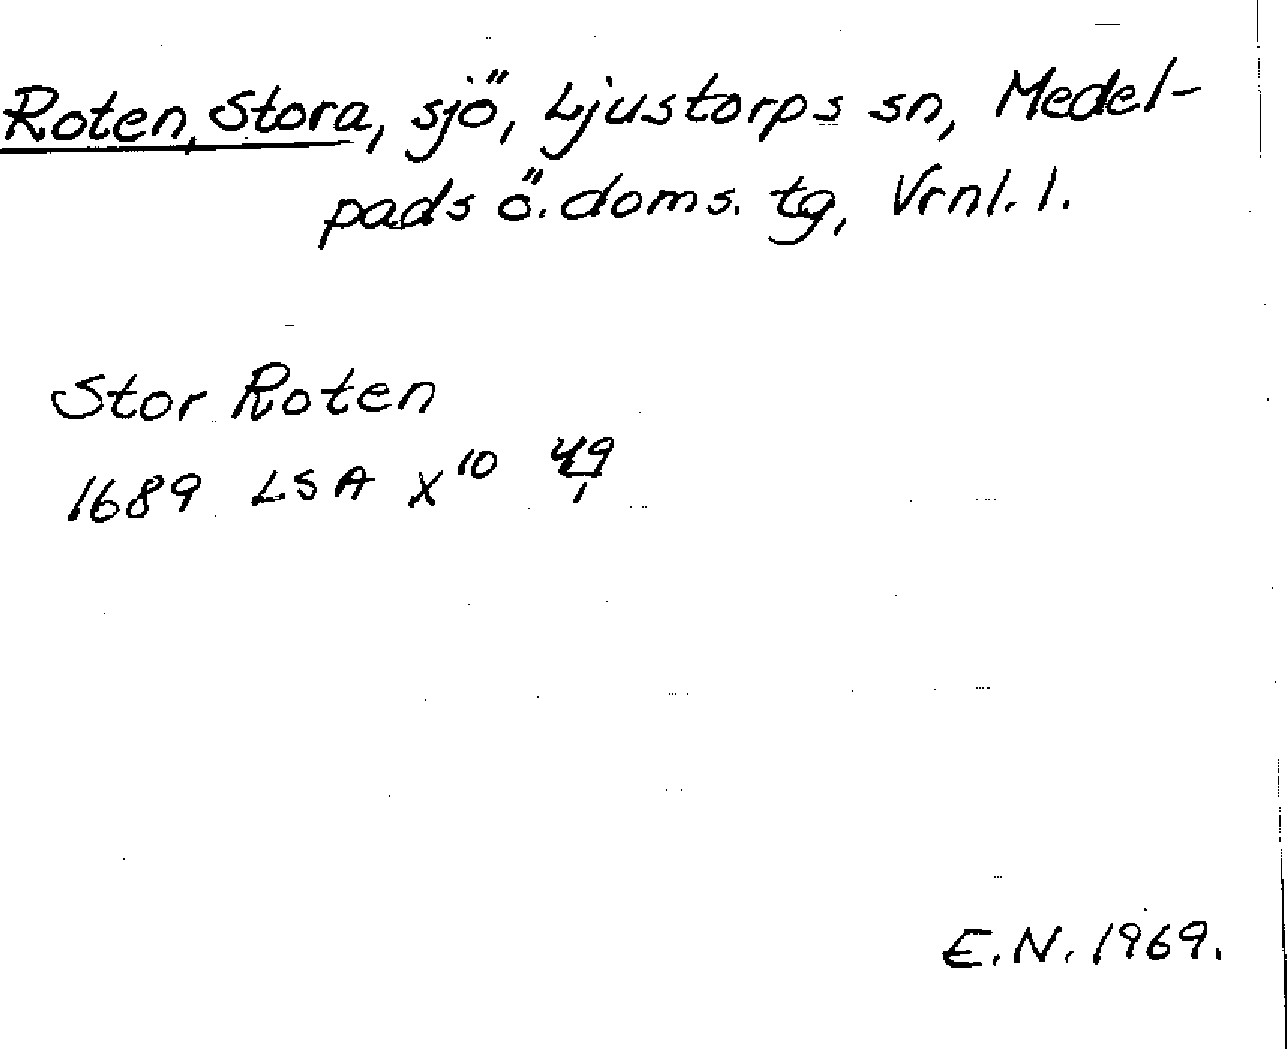 Roten, Stora, sjö, Ljustorps sn, Medel-
pads ö. doms. tg, Vrnl. l.
Stor Roten
1689 LSA X¹⁰ 49/1
E.N. 1969.